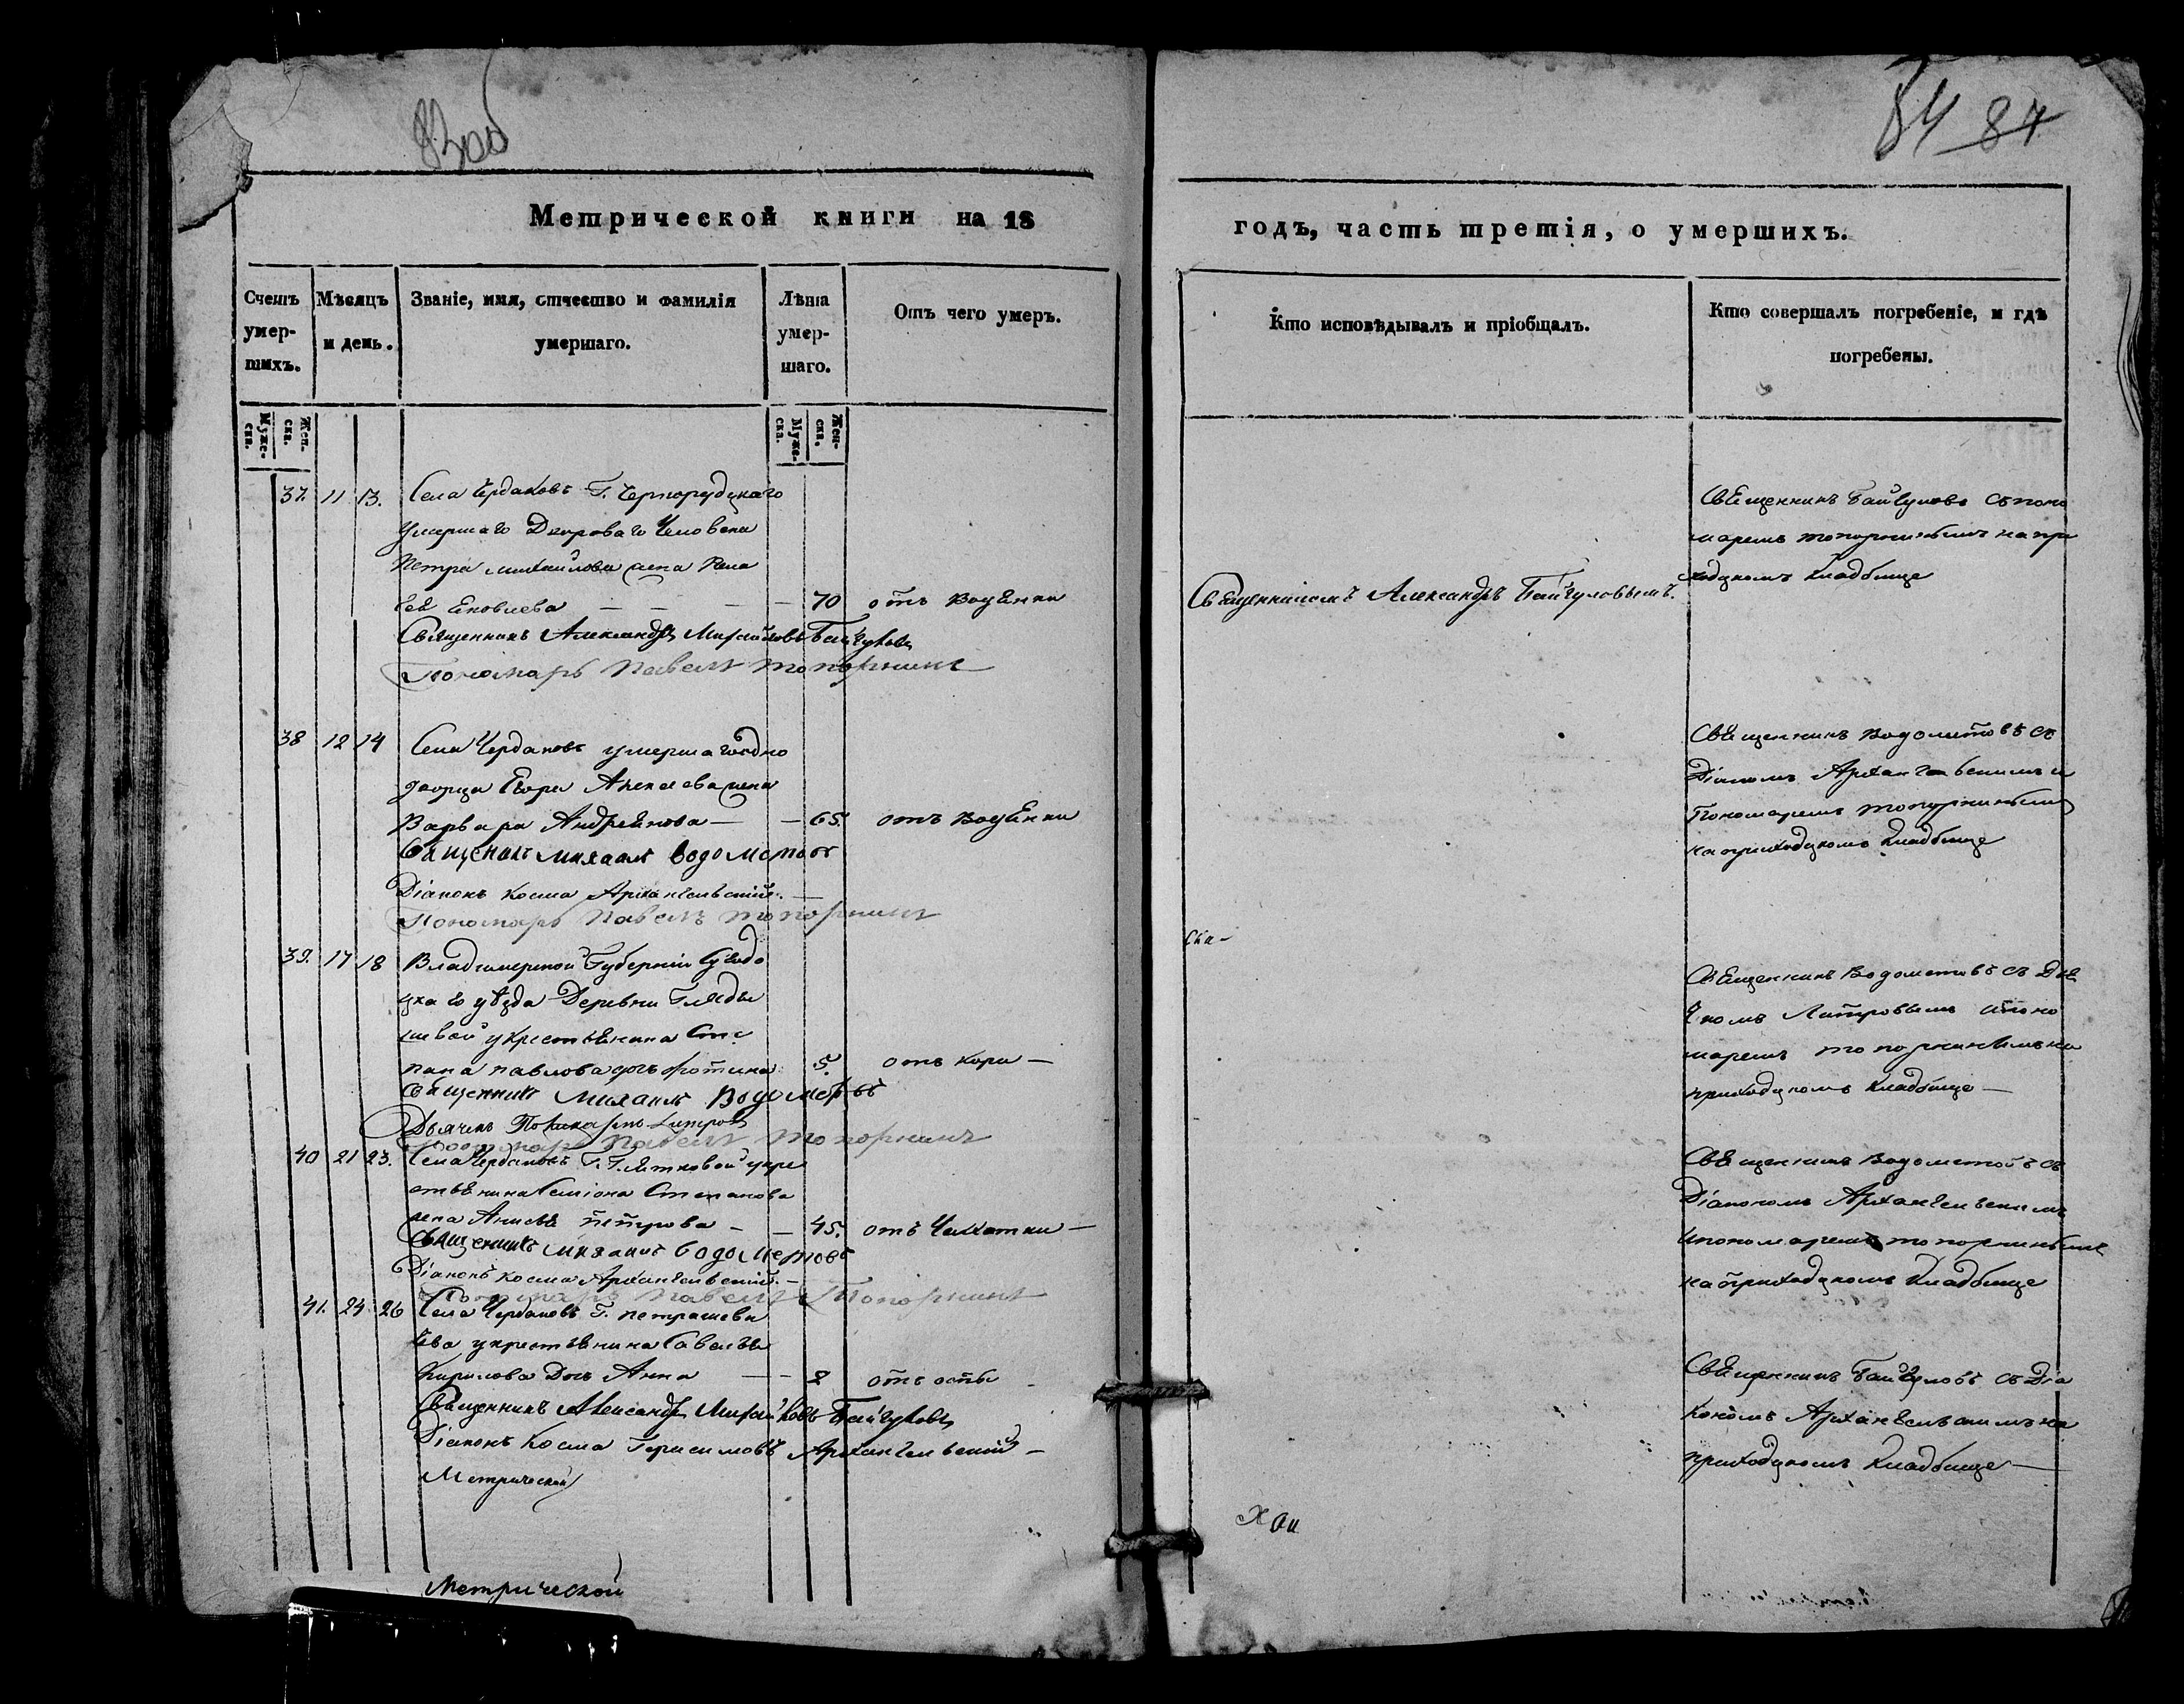 84 87
Метрической книги на 18
годъ, часть третія, о умершихъ.
Счетъ умер-шихъ.
Мѣсяцъ и день.
Званіе, имя, отчество и фамилія умершаго.
Лѣта умер-шаго.
Отъ чего умеръ.
Кто исповѣдывалъ и пріобщалъ.
Кто совершалъ погребеніе, и гдѣ погребены.
Муже-ска.
Жен-ска.
Муже-ска.
Жен-ска.
37. 11 13. Села Чердаковъ Г.
умершаго Двороваго Человека
Петра Михайлова жена
Яковлева — — — — 70 отъ Водянки
Священникъ Александръ Михайловъ Байгуловъ
Пономарь Павелъ Топорнинъ
Священникомъ Александръ Байгуловымъ.
Священникъ Байгуловъ съ поно
маремъ Топорнинымъ на при
ходскомъ Кладбище
38 12 14 Села Чердаковъ умершаго одно
дворца Егора Алексеева жена
Варвара Андреянова — — 65. отъ Водянки
Священникъ Михаилъ Водометовъ
Діаконъ Косма Архангельскій. —
Пономарь Павелъ Топорнинъ
Священникъ Водометовъ съ
Діакономъ Архангельскимъ и
Пономаремъ Топорнинымъ
на приходскомъ Кладбище
39. 17 18 Владимирской Губерніи Суздо
цкаго уѣзда Деревни
шевой у крестьянина Сте
пана Павлова дочь 5. отъ кори —
Священникъ Михаилъ Водометовъ
Дьячекъ Поликарпъ
Пономарь Павелъ Топорнинъ
Священникъ Водометовъ съ Дья
чкомъ и поно
маремъ Топорнинымъ на
приходскомъ Кладбище —
40 21 23. Села Чердаковъ Г. у кре
стьянина Семіона Степанова
жена Петрова — — 45. отъ Чахотки —
Священникъ Михаилъ Водометовъ
Діаконъ Косма Архангельскій. —
Пономарь Павелъ Топорнинъ
Священникъ Водометовъ съ
Діакономъ Архангельскимъ
и пономаремъ Топорнинымъ
на приходскомъ Кладбище
41. 24 26 Села Чердаковъ Г. Петрашеви
чева у крестьянина Савелья
Кирилова Дочь Анна — — 2 отъ оспы
Священникъ Александръ Михайловъ Байгуловъ
Діаконъ Косма Герасимовъ Архангельскій —
Метрической
Священникъ Байгуловъ съ Діа
кономъ Архангельскимъ на
приходскомъ Кладбище —
Метрической